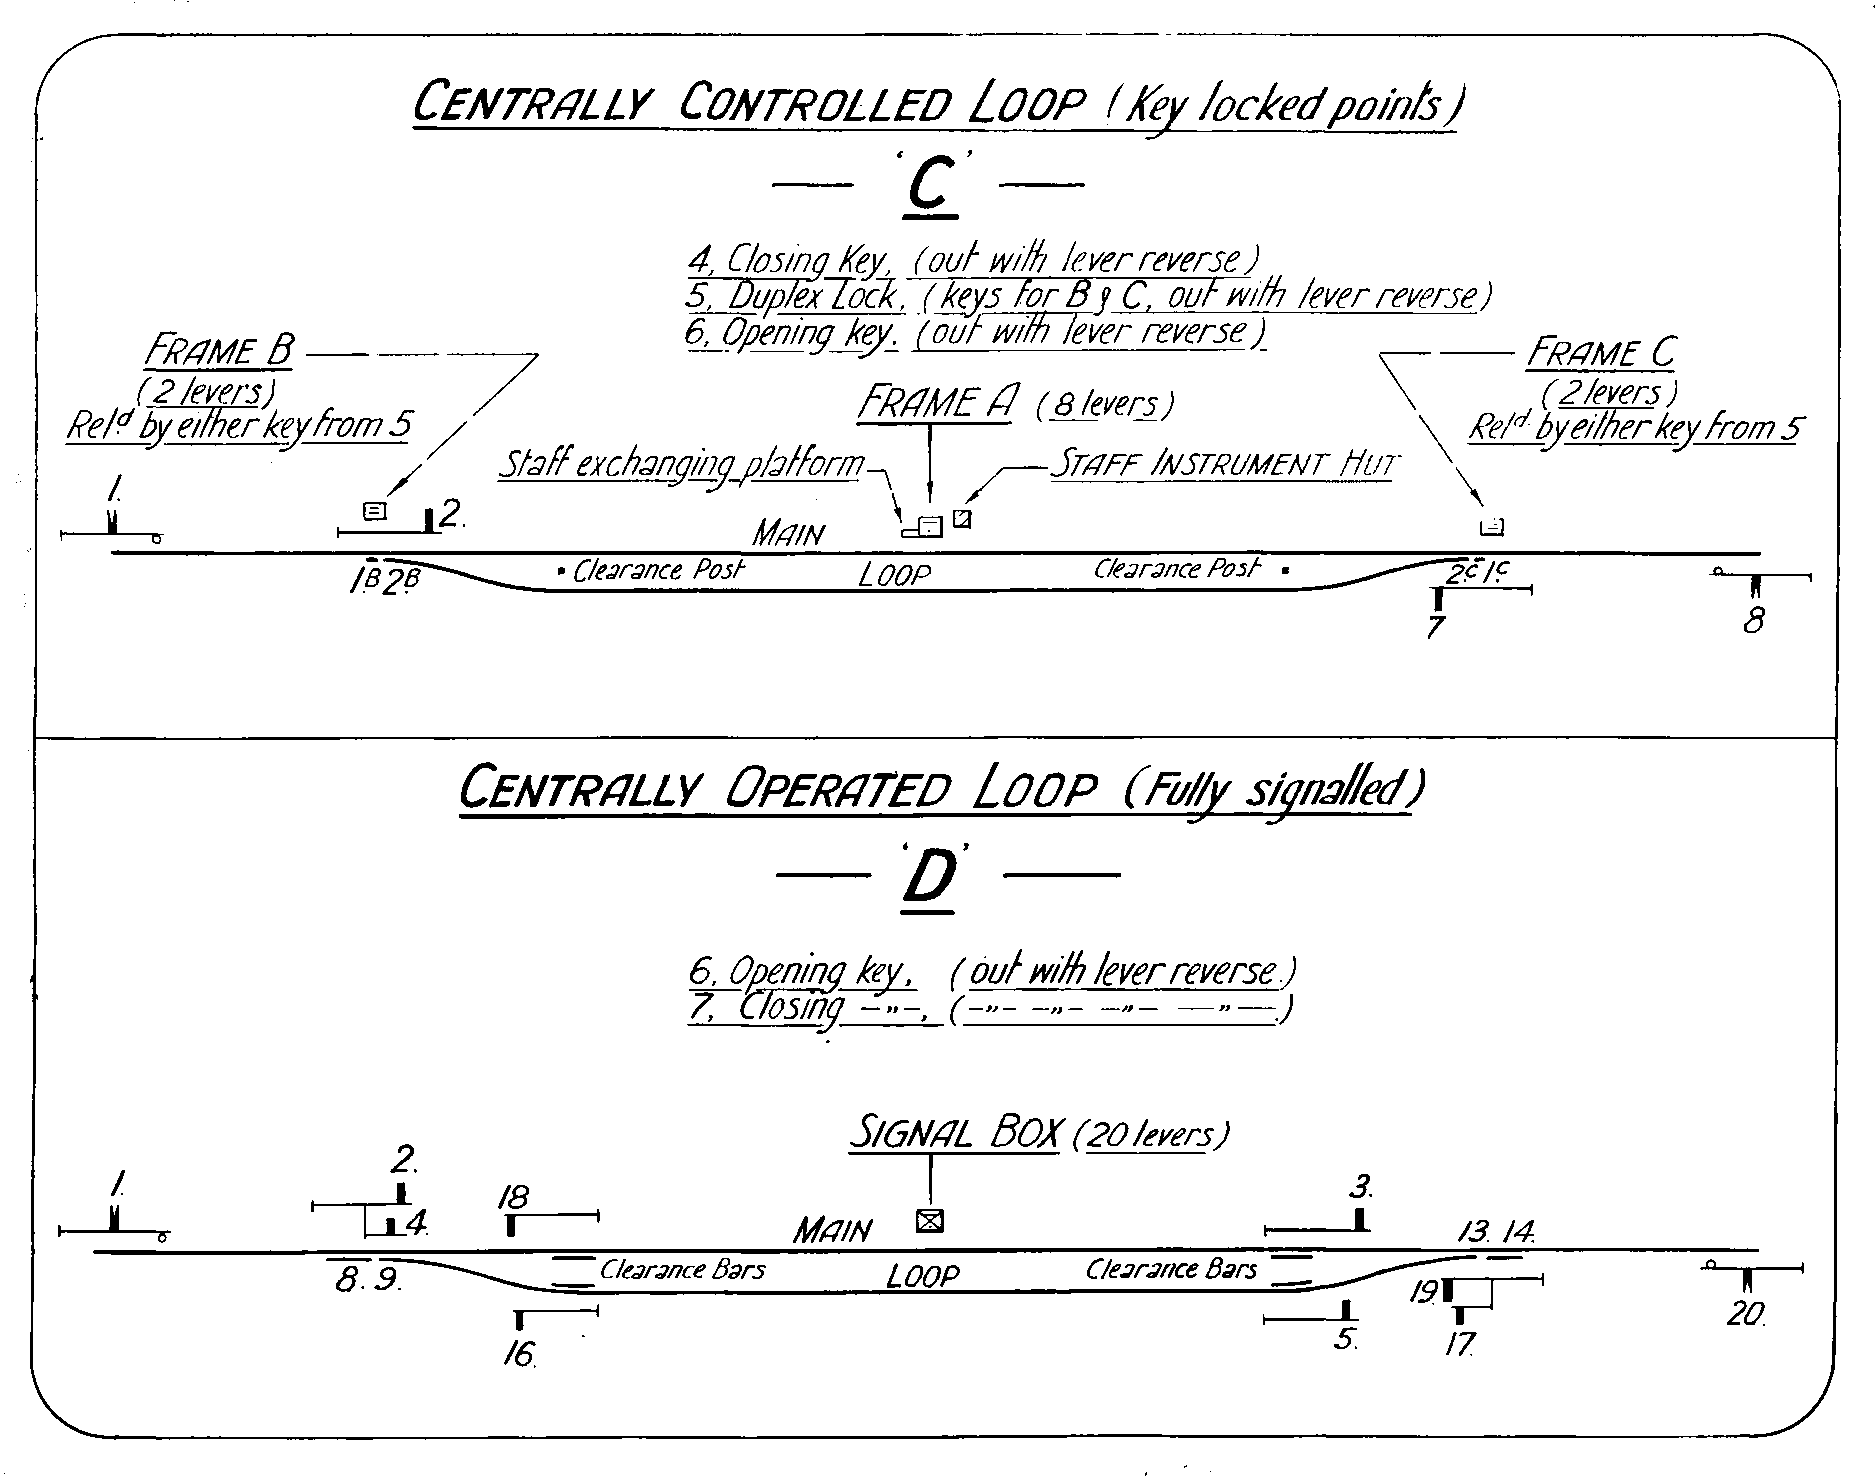 CENTRALLY CONTROLLED LOOP (Key locked points)
'C'
4, Closing Key, (out with lever reverse)
5, Duplex Lock, (keys for B & C, out with lever reverse)
6, Opening key, (out with lever reverse)
FRAME B
(2 levers)
Relᵈ by either key from 5
FRAME A (8 levers)
FRAME C
(2 levers)
Relᵈ by either key from 5
Staff exchanging platform
STAFF INSTRUMENT HUT
1.
2.
MAIN
1B 2B
Clearance Post
LOOP
Clearance Post
2C 1C
7
8
CENTRALLY OPERATED LOOP (Fully signalled)
'D'
6, Opening key, (out with lever reverse.)
7, Closing –„–, (–„– –„– –„– –„–.)
SIGNAL BOX (20 levers)
1.
2.
4.
18
MAIN
3.
13. 14.
8. 9.
Clearance Bars
LOOP
Clearance Bars
19
16.
5.
17.
20.